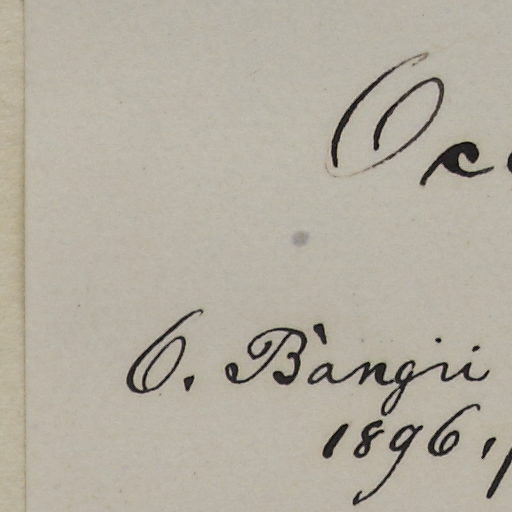 Oc
O. Bangii
1896,